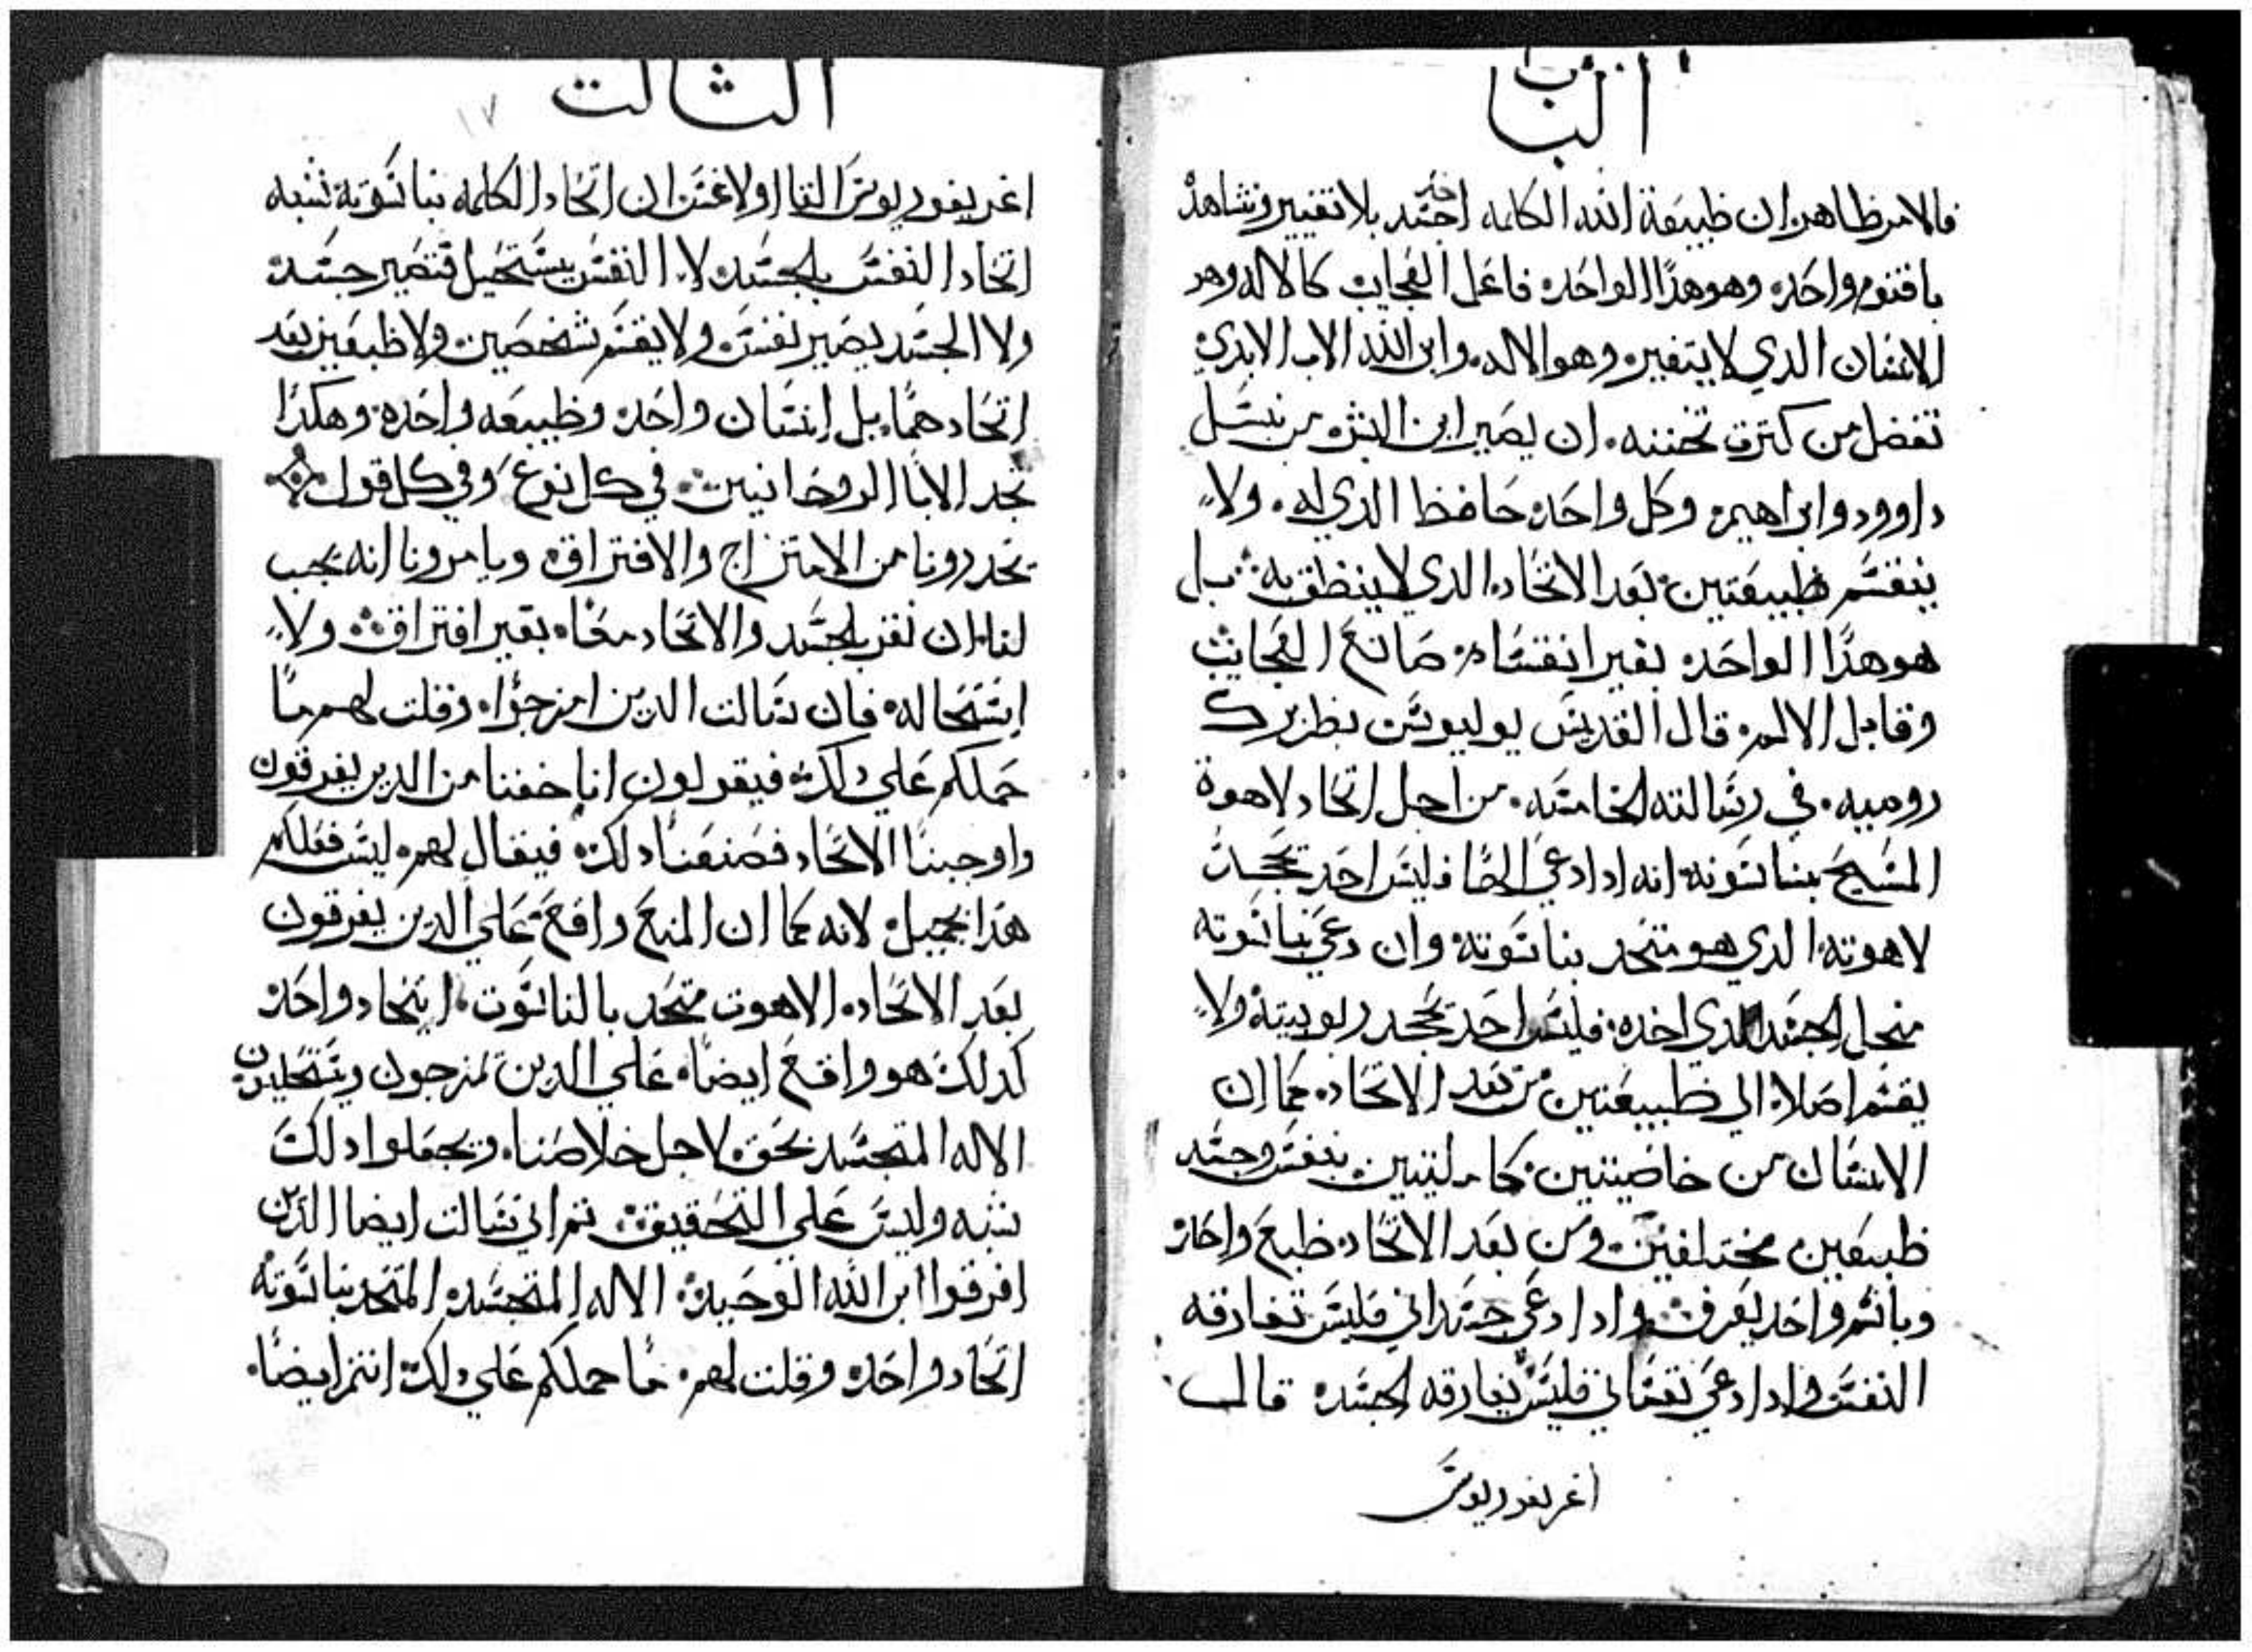 الباب
فالامر ظاهر ان طبيعة الله الكلمه اخد جسد بلا تغيير ونشاهد
باقنوم واحده وهو هذا الواحده فاعل العجايب كالاله وهو
الانسان الدي لا يتغيره وهو الاله وابن الله الاب الابدي
تفضل من كترت تحننه ان يصير ابن البشر من نسل
داوود وابراهيم وكل واحده حافظ الدي له ولا
ينقسم طبيعتين بعد الاتحاد الدي لا ينطق به بل
هو هذا الواحده بغير انقسام صانع العجايب
وقابل الالم قال القديس يوليوس بطريرك
روميه في رسالته الخامسه من اجل اتحاد لاهوة
المسيح بناسوته انه ادا دعي الها فليس احد يجحد
لاهوته الدي هو متحد بناسوته وان دعي بناسوته
منجل الجسد الدي اخده فليس احد يجحد ربوبيته ولا
يقسم اصلا الي طبيعتين من بعد الاتحاد كما ان
الانسان من خاصيتين كاملتين بنفس وجسد
طبيعين مختلفين ومن بعد الاتحاد طبع واحد
وباسم واحد يعرف وادا دعي جسداني فليس تفارقه
النفس وادا دعي نفساني فليس يفارقه الجسد قال
اغريغوريوس
الثالت
١٧
اغريغوريوس القا اولاغس ان اتحاد الكلمه بناسوته شبه
اتحاد النفس بالجسد لا النفس يستحيل فتصير جسد
ولا الجسد يصير نفس ولا يقسم شخصين ولا طبعين بعد
اتحادهما بل انسان واحد وطبيعه واحده وهكدا
نجد الابا الروحانيين في كل نوع وفي كل قول
يحدرونا من الامتزاج والافتراق ويامرونا انه يجب
لنا ان نقر بالجسد والاتحاد معا بغير افتراق ولا
استحاله فان سالت الدين امزجوا وقلت لهم ما
حملكم علي دلك فيقولون انا خفنا من الدين يفرقون
واوجبنا الاتحاد فصنعنا دلك فيقال لهم ليس فعلكم
هدا بجميل لانه كما ان المنع واقع علي الدين يفرقون
بعد الاتحاد الاهوت متحد بالناسوت اتحاد واحد
كدلك هو واقع ايضا علي الدين يمزجون ويستحليون
الاله المتجسد بحق لاجل خلاصنا ويجعلوا دلك
شبه وليس علي التحقيق تم اني سالت ايضا الدين
افرقوا ابن الله الوحيد الاله المتجسد المتحد بناسوته
اتحاد واحد وقلت لهم ما حملكم علي دلك انتم ايضا